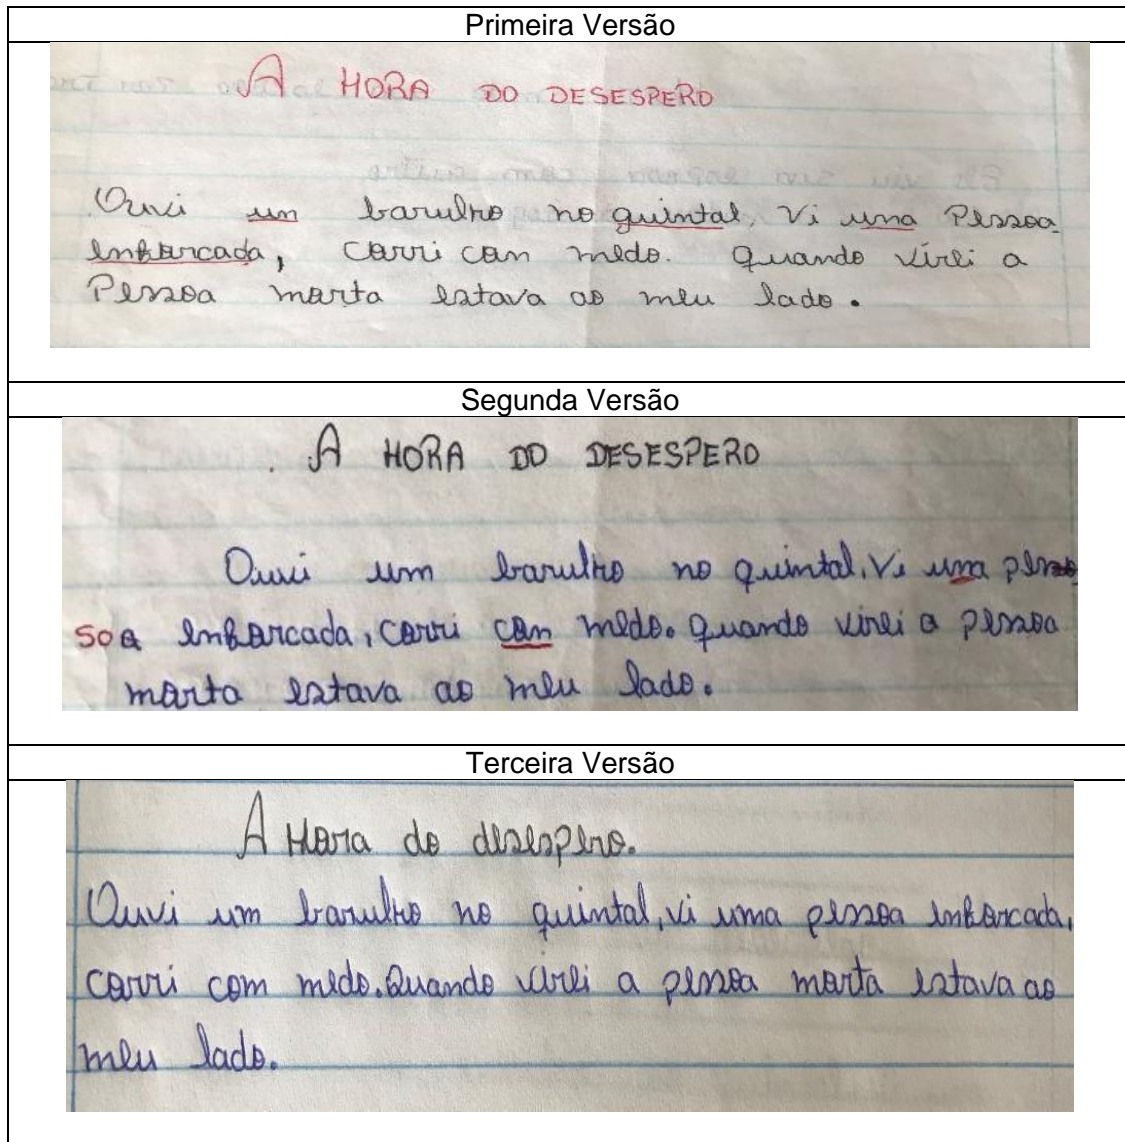 Primeira Versão
A HORA DO DESESPERO
Ouvi um barulho no quintal, Vi uma Pessoa
enforcada, corri con medo. quando virei a
Pessoa morta estava ao meu lado.
Segunda Versão
A HORA DO DESESPERO
Ouvi um barulho no quintal. Vi uma pes
soa enforcada, corri con medo. quando virei a pessoa
morta estava ao meu lado.
Terceira Versão
A Hora do desespero.
Ouvi um barulho no quintal, vi uma pessoa enforcada,
corri com medo. Quando virei a pessoa morta estava ao
meu lado.